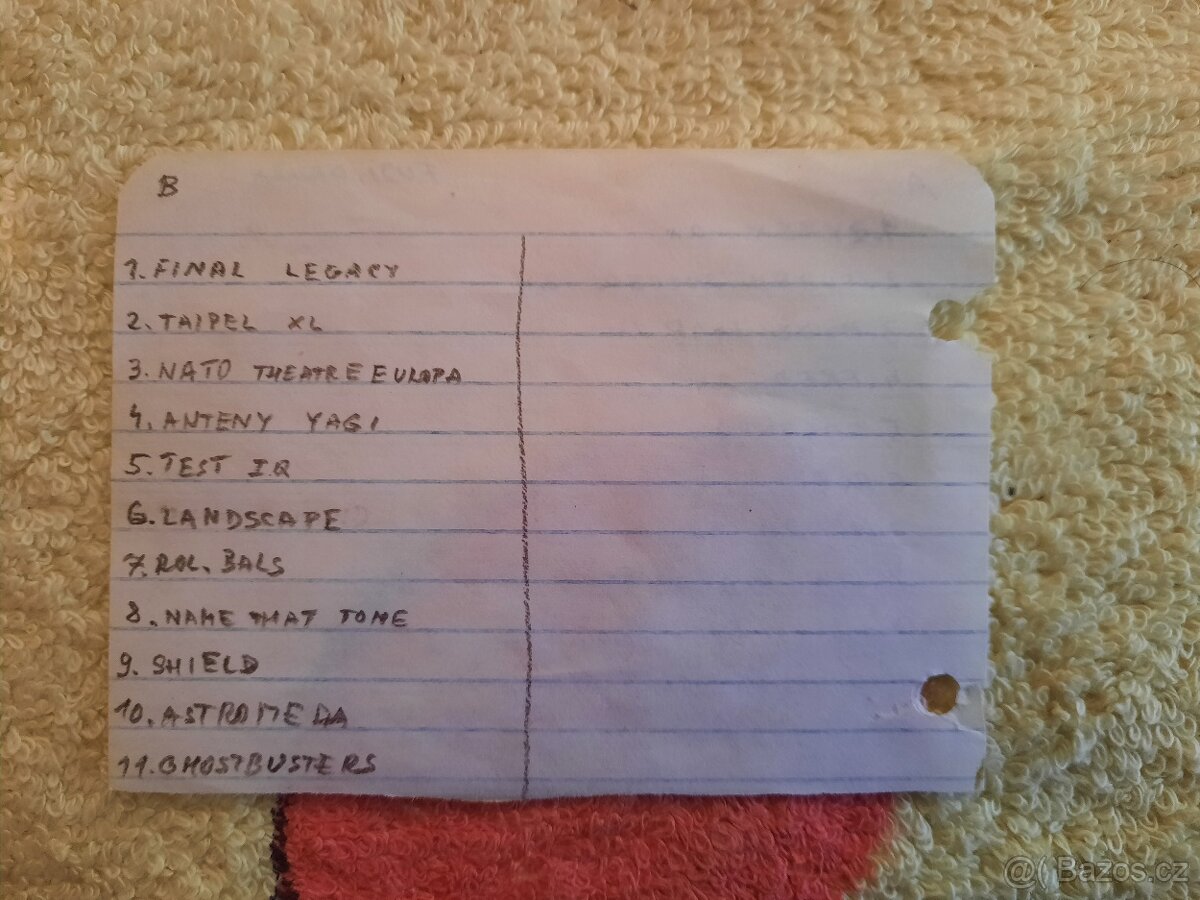 B
1. FINAL LEGACY
2. TAIPEL XL
3. NATO THEATRE EUROPA
4. ANTENY YAGI
5. TEST IQ
6. LANDSCAPE
7. ROL. BALS
8. NAME THAT TONE
9. SHIELD
10. ASTROMEDA
11. GHOSTBUSTERS
@( Bazos.cz